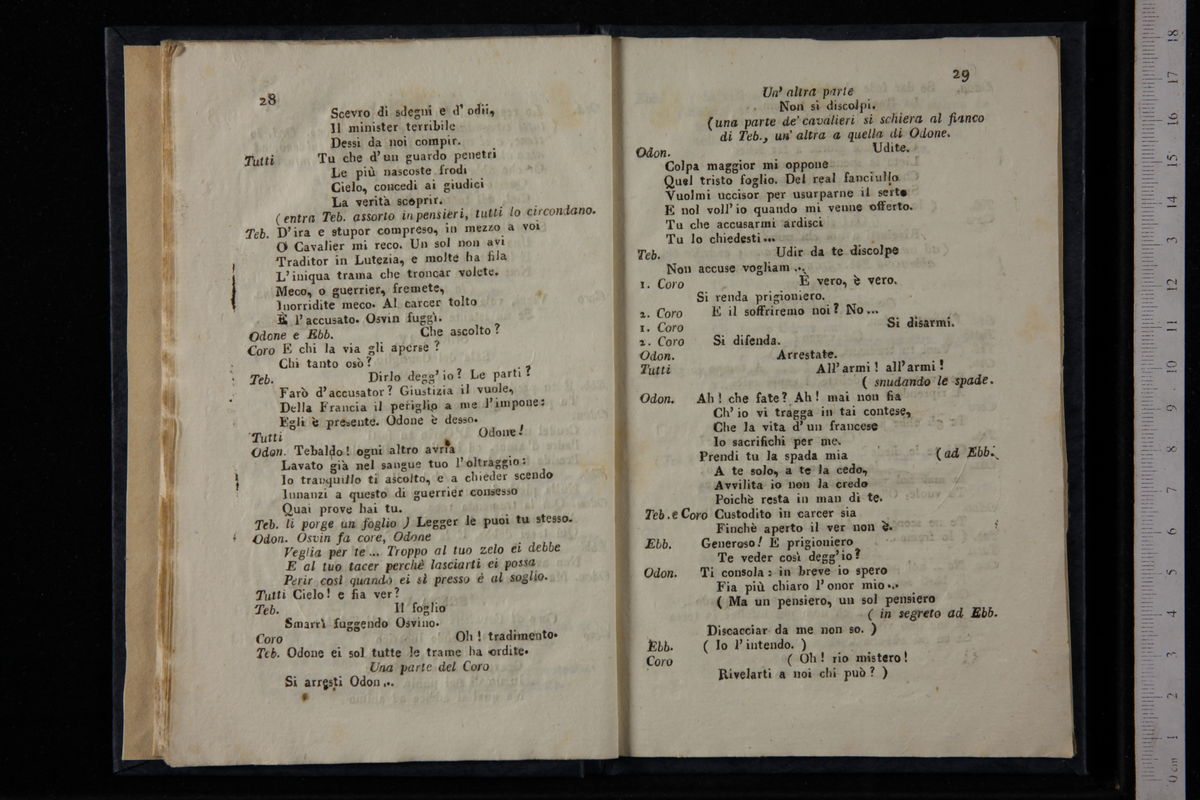 28
Scevro di sdegni e d' odii,
Il minister terribile
Dessi da noi compir.
Tutti Tu che d' un guardo penetri
Le più nascoste frodi
Cielo, concedi ai giudici
La verità scoprir.
(entra Teb. assorto in pensieri, tutti lo circondano.
Teb. D' ira e stupor compreso, in mezzo a voi
O Cavalier mi reco. Un sol non avi
Traditor in Lutezia, e molte ha fila
L' iniqua trama che troncar volete.
Meco, o guerrier, fremete,
Inorridite meco. Al carcer tolto
È l' accusato. Osvin fuggì.
Odone e Ebb. Che ascolto?
Coro E chi la via gli aperse?
Chi tanto osò?
Teb. Dirlo degg' io? Le parti?
Farò d' accusator? Giustizia il vuole,
Della Francia il periglio a me l' impone:
Egli è presente. Odone è desso.
Tutti Odone!
Odon. Tebaldo! ogni altro avria
Lavato già nel sangue tuo l' oltraggio:
Io tranquillo ti ascolto, e a chieder scendo
Innanzi a questo di guerrier consesso
Quai prove hai tu.
Teb. li porge un foglio ) Legger le puoi tu stesso.
Odon. Osvin fa core, Odone
Veglia per te ... Troppo al tuo zelo ei debbe
E al tuo tacer perchè lasciarti ei possa
Perir così quando ei sì presso è al soglio.
Tutti Cielo! e fia ver?
Teb. Il foglio
Smarrì fuggendo Osvino.
Coro Oh! tradimento.
Teb. Odone ei sol tutte le trame ha ordite.
Una parte del Coro
Si arresti Odon...
29
Un' altra parte
Non si discolpi.
(una parte de' cavalieri si schiera al fianco
di Teb., un' altra a quella di Odone.
Odon. Udite.
Colpa maggior mi oppone
Quel tristo foglio. Del real fanciullo
Vuolmi uccisor per usurparne il serto
E nol voll' io quando mi venne offerto.
Tu che accusarmi ardisci
Tu lo chiedesti...
Teb. Udir da te discolpe
Non accuse vogliam...
1. Coro È vero, è vero.
Si renda prigioniero.
2. Coro E il soffriremo noi? No...
1. Coro Si disarmi.
2. Coro Si difenda.
Odon. Arrestate.
Tutti All' armi! all' armi!
( snudando le spade.
Odon. Ah! che fate? Ah! mai non fia
Ch' io vi tragga in tai contese,
Che la vita d' un francese
Io sacrifichi per me.
Prendi tu la spada mia (ad Ebb.
A te solo, a te la cedo,
Avvilita io non la credo
Poichè resta in man di te.
Teb. e Coro Custodito in carcer sia
Finchè aperto il ver non è.
Ebb. Generoso! E prigioniero
Te veder così degg' io?
Odon. Ti consola: in breve io spero
Fia più chiaro l' onor mio...
( Ma un pensiero, un sol pensiero
( in segreto ad Ebb.
Discacciar da me non so. )
Ebb. ( Io l' intendo. )
Coro ( Oh! rio mistero!
Rivelarti a noi chi può? )
0 cm 1 2 3 4 5 6 7 8 9 10 11 12 13 14 15 16 17 18